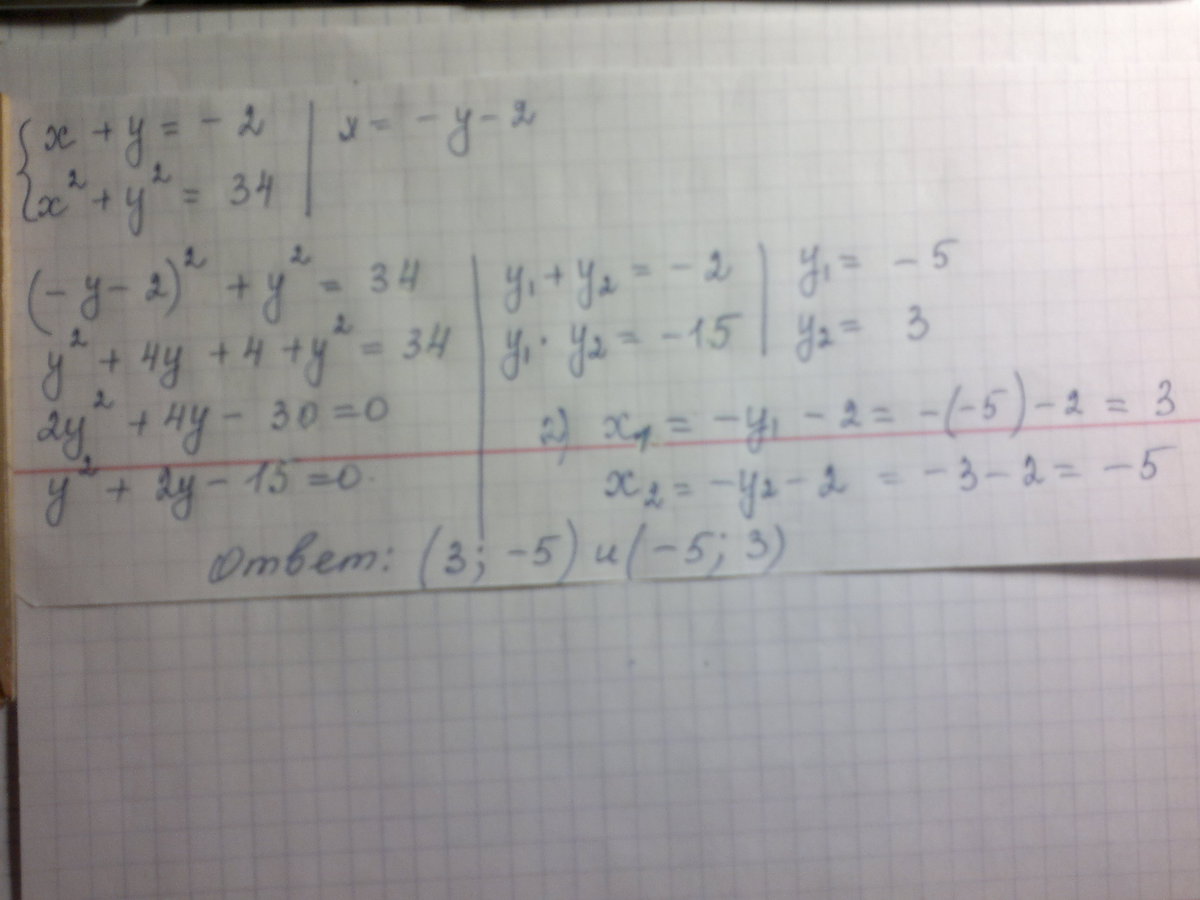 { x + y = - 2 | x = - y - 2
x² + y² = 34
(- y - 2)² + y² = 34
y² + 4y + 4 + y² = 34
2y² + 4y - 30 = 0
y² + 2y - 15 = 0
y₁ + y₂ = - 2 | y₁ = - 5
y₁ · y₂ = - 15 | y₂ = 3
2) x₁ = - y₁ - 2 = - (-5) - 2 = 3
x₂ = - y₂ - 2 = - 3 - 2 = - 5
Ответ: (3; -5) и (-5; 3)